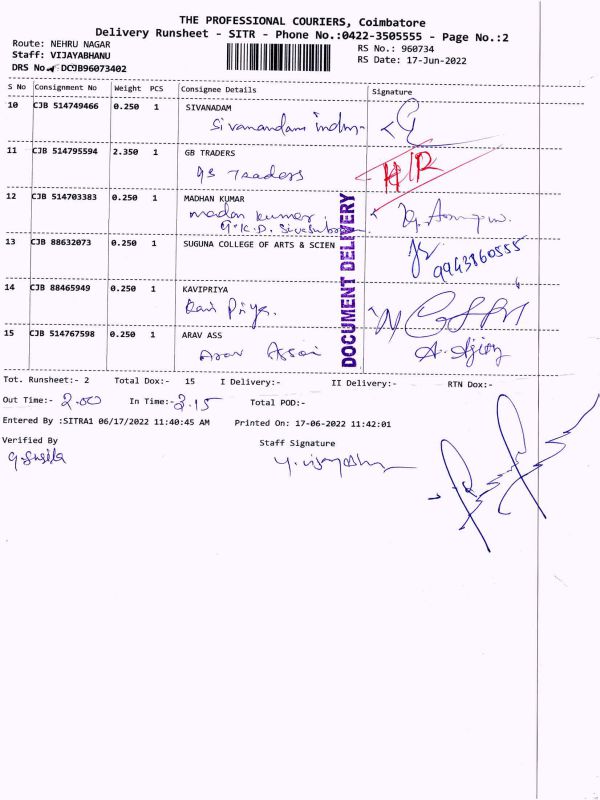 THE PROFESSIONAL COURIERS, Coimbatore
Delivery Runsheet - SITR - Phone No.:0422-3505555 - Page No.:2
Route: NEHRU NAGAR
RS No.: 960734
Staff: VIJAYABHANU
RS Date: 17-Jun-2022
DRS No DCJB96073402
S No Consignment No Weight PCS Consignee Details Signature
10 CJB 514749466 0.250 1 SIVANADAM
Sivanandam
11 CJB 514795594 2.350 1 GB TRADERS
Traders
12 CJB 514703383 0.250 1 MADHAN KUMAR
madan kumar
13 CJB 88632073 0.250 1 SUGUNA COLLEGE OF ARTS & SCIEN
9943860555
14 CJB 88465949 0.250 1 KAVIPRIYA
Priya.
15 CJB 514767598 0.250 1 ARAV ASS
Arav
DOCUMENT DELIVERY
Tot. Runsheet:- 2 Total Dox:- 15 I Delivery:- II Delivery:- RTN Dox:-
Out Time:- 2.00 In Time:- 3.15 Total POD:-
Entered By :SITRA1 06/17/2022 11:40:45 AM Printed On: 17-06-2022 11:42:01
Verified By Staff Signature